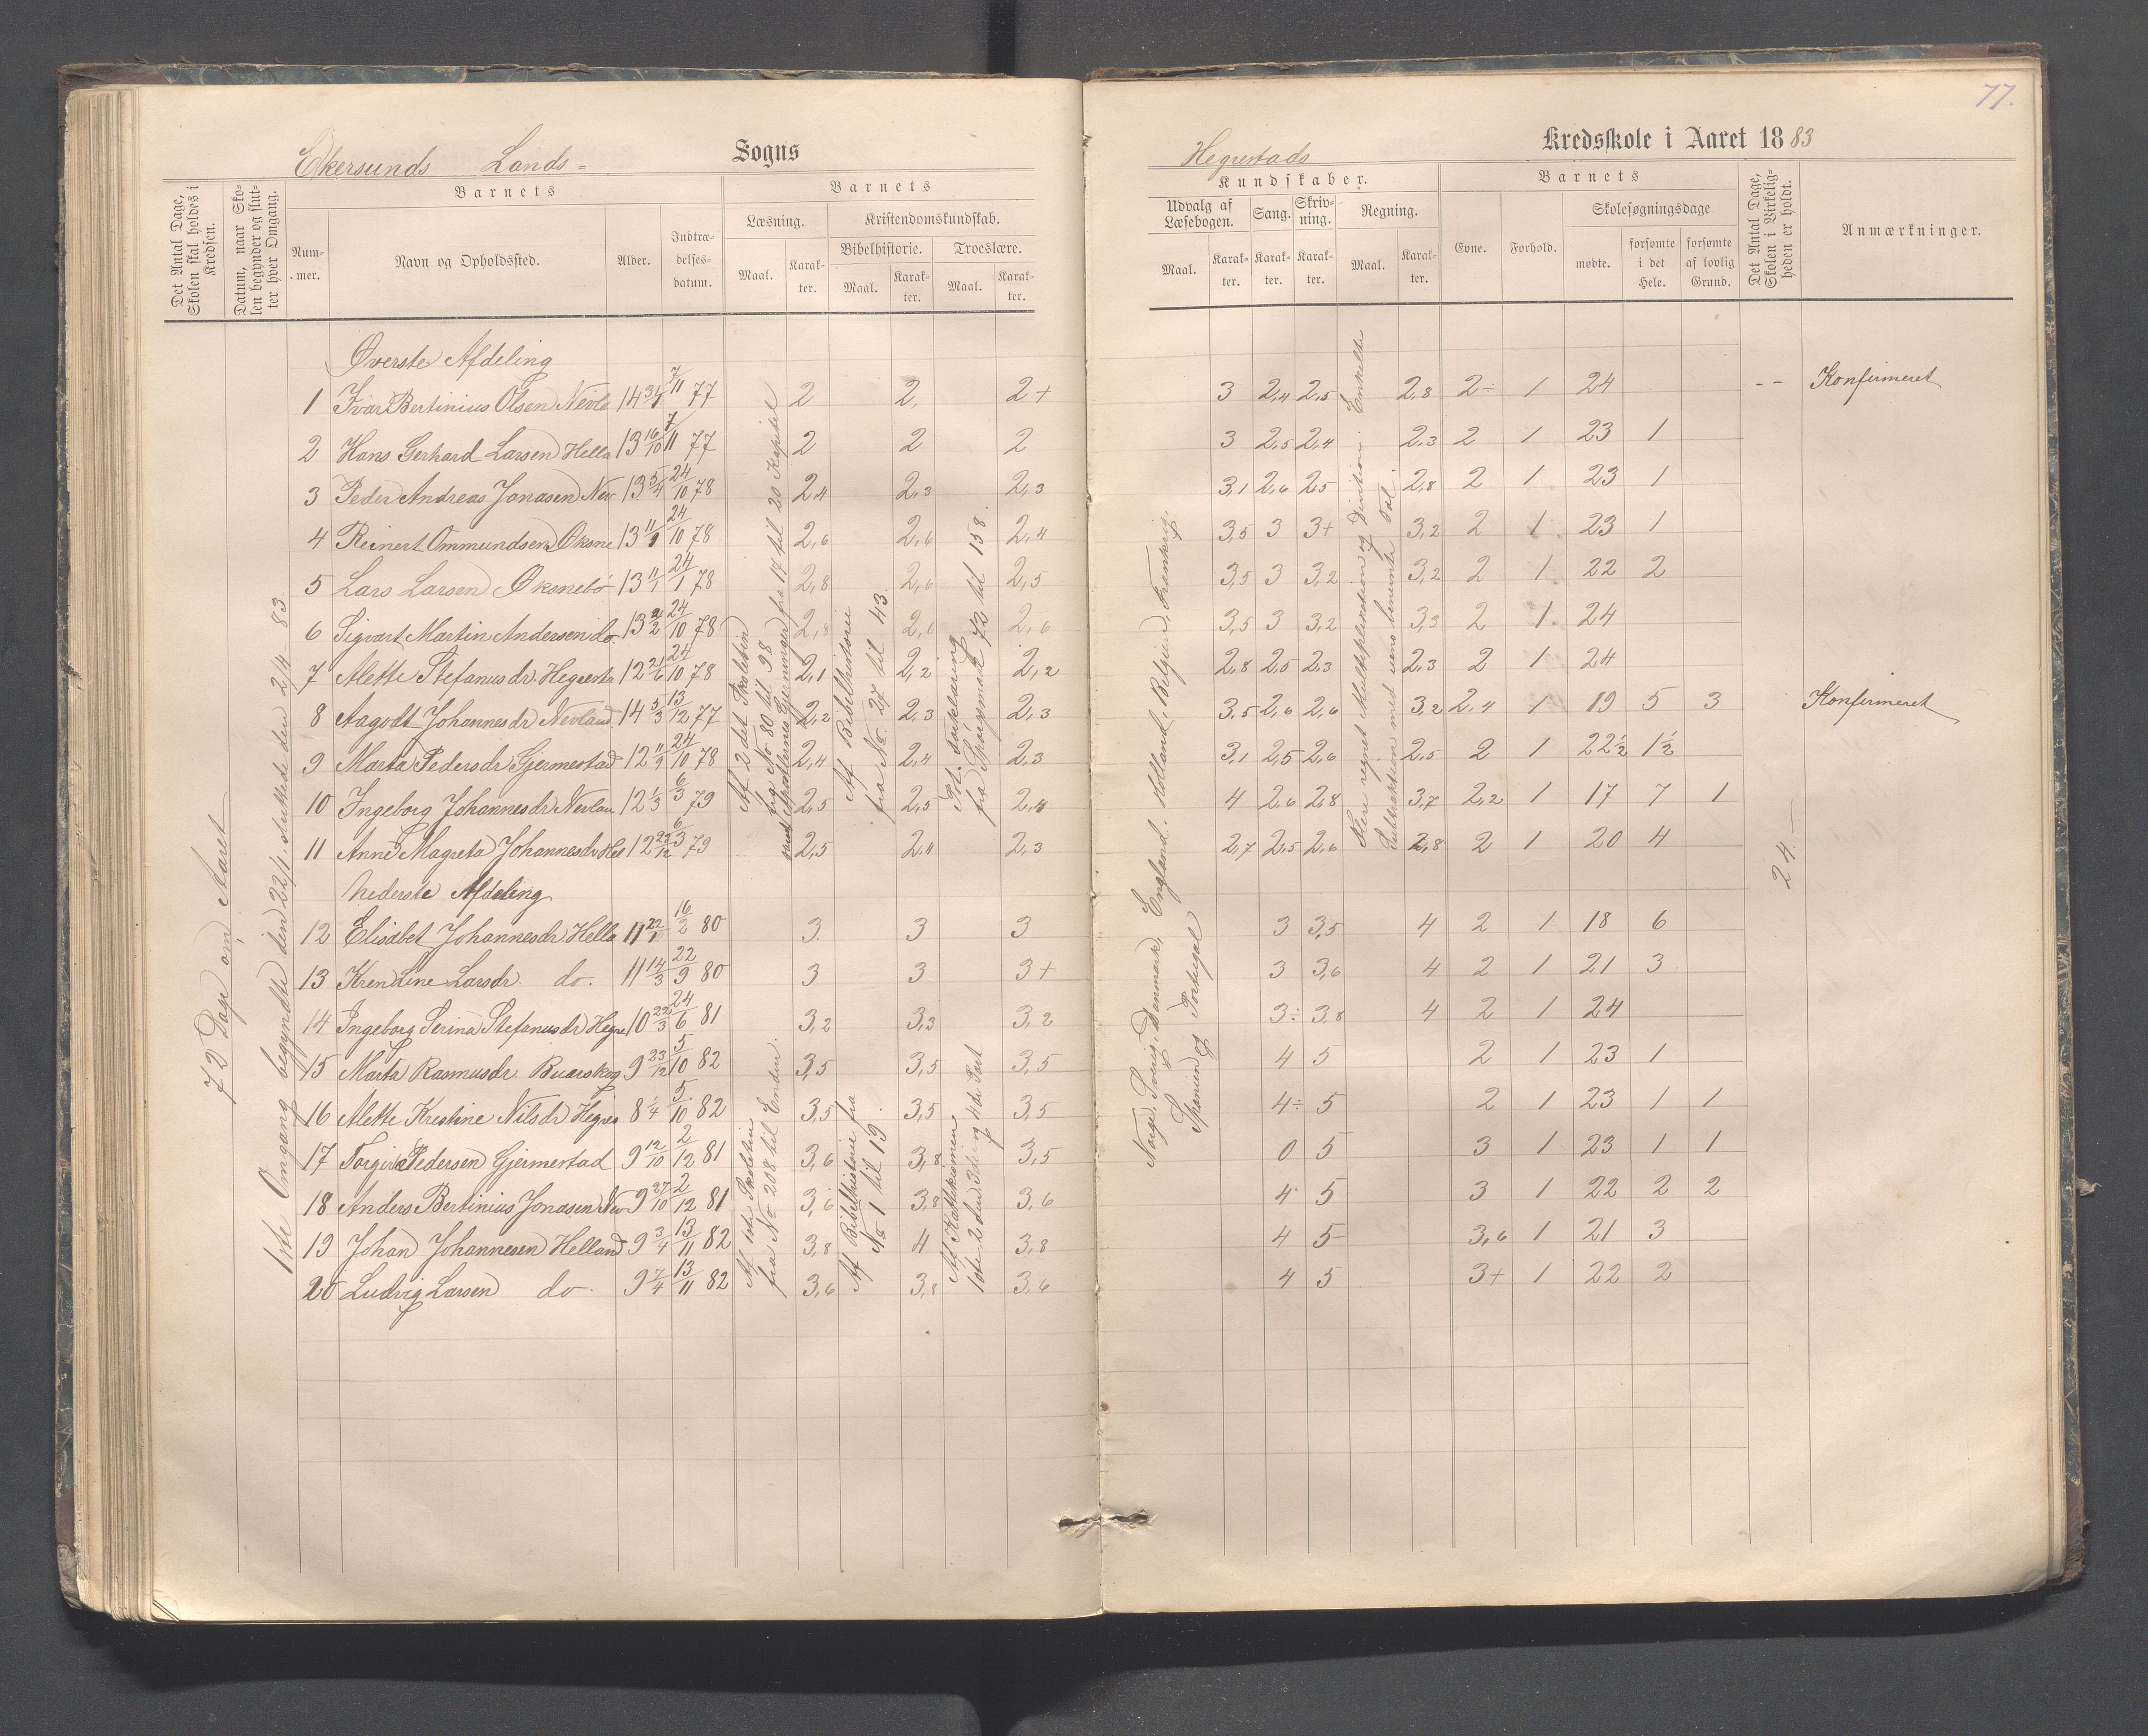 77.
Ekersunds Lands- Sogns
Hegrestads Kredsskole i Aaret 1883
Det Antal Dage, Skolen skal holdes i Kredsen.
Datum, naar Skolen begynder og slutter hver Omgang.
Barnets
Nummer.
Navn og Opholdssted.
Alder.
Indtrædelsesdatum.
Barnets
Læsning.
Kristendomskundskab.
Bibelhistorie.
Troeslære.
Maal.
Karakter.
Maal.
Karakter.
Maal.
Karakter.
Kundskaber.
Udvalg af Læsebogen.
Sang.
Skrivning.
Regning.
Maal.
Karakter.
Karakter.
Karakter.
Maal.
Karakter.
Barnets
Evne.
Forhold.
Skolesøgningsdage
mødte.
forsømte i det Hele.
forsømte af lovlig Grund.
Det Antal Dage, Skolen i Virkeligheden er holdt.
Anmærkninger.
72 Dage om Aaret
1ste Omgang begyndte den 22/1 sluttede den 2/4 83.
Øverste Afdeling
1 Ivar Bertinius Olsen Nevla 14 7/11 77 2 2 2+ 3 2,4 2,5 2,8 2÷ 1 24 -- Konfirmeret
2 Hans Gerhard Larsen Hella 13 16/10 7/11 77 2 2 2 3 2,5 2,4 2,3 2 1 23 1
3 Peder Andreas Jonasen Nev 13 5/4 24/10 78 2,4 2,3 2,3 3,1 2,6 2,5 2,8 2 1 23 1
4 Reinert Ommundsen Øksne 13 11/9 24/10 78 2,6 2,6 2,4 3,5 3 3+ 3,2 2 1 23 1
5 Lars Larsen Øksnebö 13 11/1 24/1 78 2,8 2,6 2,5 3,5 3 3,2 3,2 2 1 22 2
6 Sigvart Martin Andersen do. 13 24/10 78 2,8 2,6 2,6 3,5 3 3,2 3,3 2 1 24
7 Alette Stefanusdr Hegresta 12 21/6 24/10 78 2,1 2,2 2,2 2,8 2,5 2,3 2,3 2 1 24
8 Aagodt Johannesdr Nevland 14 5/3 13/12 77 2,2 2,3 2,3 3,5 2,6 2,6 3,2 2,4 1 19 5 3 Konfirmeret
9 Marta Pedersdr Gjermestad 12 11/9 24/10 78 2,4 2,4 2,3 3,1 2,5 2,6 2,5 2 1 22½ 1½
10 Ingeborg Johannesdr Nevlan 12 1/3 6/3 79 2,5 2,5 2,4 4 2,6 2,8 3,7 2,2 1 17 7 1
11 Anne Magreta Johannesdr Hel 12 22/12 6/3 79 2,5 2,4 2,3 2,7 2,5 2,6 2,8 2 1 20 4
Nederste Afdeling
12 Elisabet Johannesdr Hella 11 16/2 80 3 3 3 3 3,5 4 2 1 18 6
13 Kren Line Larsdr. do. 11 14/3 22/9 80 3 3 3+ 3 3,6 4 2 1 21 3
14 Ingeborg Serina Stefanusdr Hegre 10 22/3 24/6 81 3,2 3,3 3,2 3÷ 3,8 4 2 1 24
15 Marta Rasmusdr. Buarskog 9 23/12 5/10 82 3,5 3,5 3,5 4 5 2 1 23 1
16 Alette Kristine Nilsdr Hegres 8 1/4 5/10 82 3,5 3,5 3,5 4÷ 5 2 1 23 1 1
17 Torger Pedersen Gjermestad 9 12/10 2/12 81 3,6 3,8 3,5 0 5 3 1 23 1 1
18 Anders Bertinius Jonasen Nev 9 27/10 2/12 81 3,6 3,8 3,6 4 5 3 1 22 2 2
19 Johan Johannesen Helland 9 3/4 13/11 82 3,8 4 3,8 4 5 3,6 1 21 3
20 Ludvig Larsen do. 9 7/4 13/11 82 3,6 3,8 3,6 4 5 3+ 1 22 2
Af 2 det Skoletrin
fra No 80 til 98
samt Apostlernes Gjerninger fra 17 til 20 Kapitel
Af Bibelhistorie
fra No. 27 til 43
Pot. Forklaring
fra Spørgsmaal 72 til 158.
Af 1ste Skoletrin
fra No 208 til Enden.
Af Bibelhistorie fra
No 1 til 19.
Af Kathekismen
1ste 2den 3die og 4de Part
Norge, Sverig, Danmark, England, Holland, Belgien, Frankrig,
Spanien og Portugal
Flere regnet Multiplikation og Division. Enkelte
Subtraktion med uens benævnte Tal.
24.